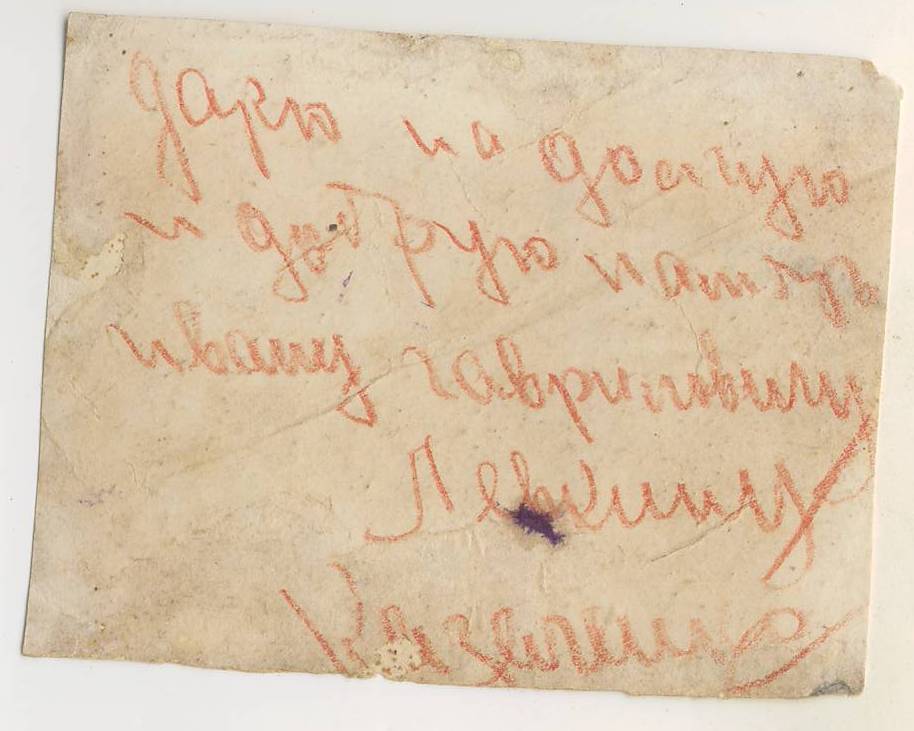 Дарю на долгую
и добрую память
ивану гавриловичу
Левкину